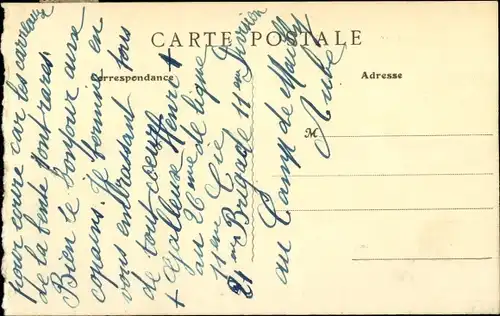 CARTE POSTALE
Correspondance
Adresse
M
pour écrire car les carreaux
de la tente sont rares.
Bien le bonjour aux
copains. Je termine en
vous embrassant tous
de tout coeur
Henri
au 26 me de ligne
11 me Cie
21 me Brigade 11 me Division
au Camp de Mailly
Aube